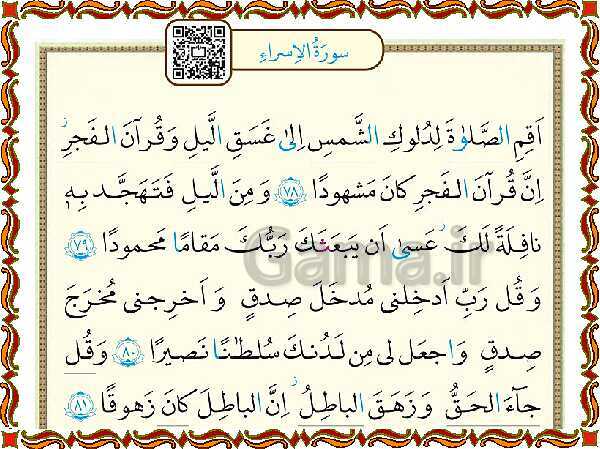 سورَةُ الإسراءِ
اَقِمِ الصَّلوٰةَ لِدُلوكِ الشَّمسِ اِلىٰ غَسَقِ الَّيلِ وَقُرآنَ الفَجرِ
اِنَّ قُرآنَ الفَجرِ كانَ مَشهودًا ﴿٧٨﴾ وَ مِنَ الَّيلِ فَتَهَجَّد بِهٖ
نافِلَةً لَكَ عَسىٰ اَن يَبعَثَكَ رَبُّكَ مَقامًا مَحمودًا ﴿٧٩﴾
Gama.ir
وَ قُل رَبِّ اَدخِلنى مُدخَلَ صِدقٍ وَ اَخرِجنى مُخرَجَ
صِدقٍ وَ اجعَل لى مِن لَدُنكَ سُلطٰنًا نَصيرًا ﴿٨٠﴾ وَ قُل
جآءَ الحَقُّ وَ زَهَقَ الباطِلُ اِنَّ الباطِلَ كانَ زَهوقًا ﴿٨١﴾